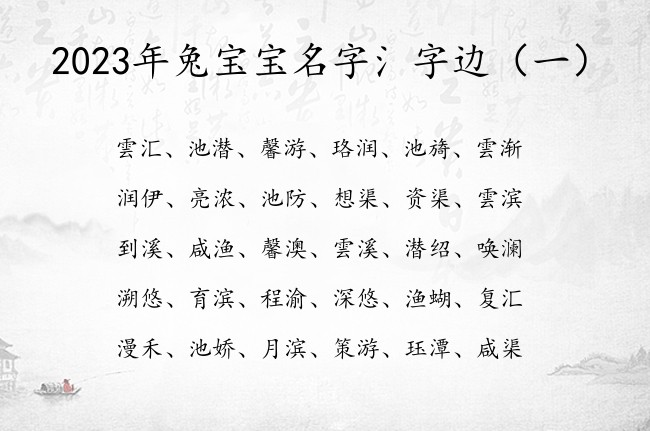 2023年兔宝宝名字氵字边（一）
雲汇、池潜、馨游、珞润、池旖、雲渐
润伊、亮浓、池防、想渠、资渠、雲滨
到溪、咸渔、馨澳、雲溪、潜绍、唤澜
溯悠、育滨、程渝、深悠、渔蝴、复汇
漫禾、池娇、月滨、策游、珏潭、咸渠